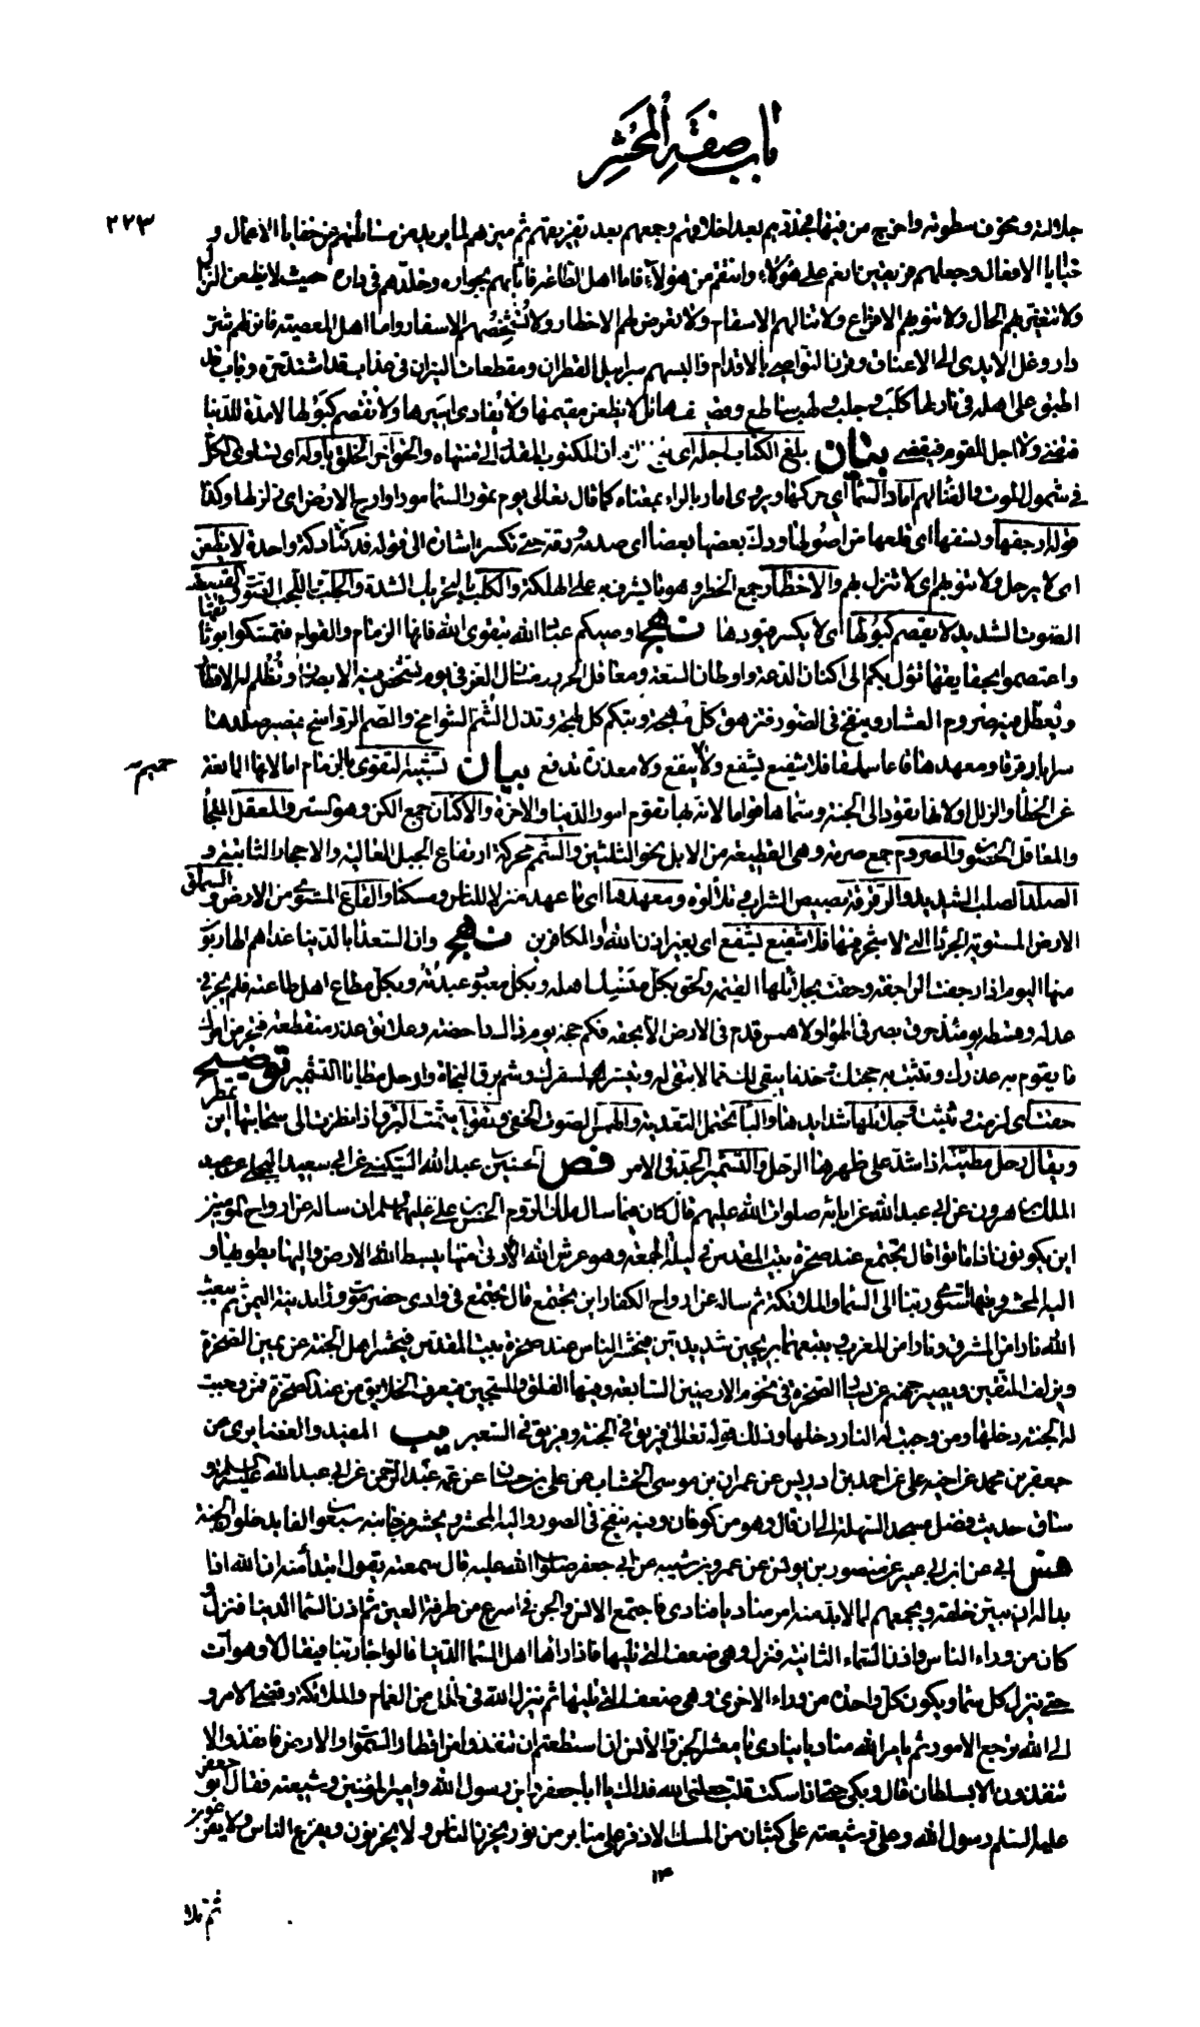 باب صفة المحشر
٢٢٣
جلالته ومخوف سطوته واخرج من فيها فجددهم بعد اخلاقهم وجمعهم بعد تفريقهم ثم ميزهم لما يريد من مسائلتهم عن خفايا الاعمال و
خبايا الافعال وجعلهم فريقين انعم على هؤلاء وانتقم من هؤلاء فاما اهل الطاعة فاثابهم بجواره وخلدهم في داره حيث لا يظعن النزال
ولا تتغير لهم الحال ولا تنوبهم الافزاع ولا تنالهم الاسقام ولا تعرض لهم الاخطار ولا تشخصهم الاسفار واما اهل المعصية فانزلهم شر
دار وغل الايدي الى الاعناق وقرن النواصي بالاقدام والبسهم سرابيل القطران ومقطعات النيران في عذاب قد اشتد حره وباب قد
اطبق على اهله في نار لها كلب وجلب ولهب ساطع وقصيف هائل لا يظعن مقيمها ولا يفادى اسيرها ولا تفصم كبولها لا مدة للدار
فتفنى ولا اجل للقوم فيقضى بيان بلغ الكتاب اجله اي ان المكتوب المقدر الى منتهاه والحق اخر الخلق باوله اي تساوى الكل
في شمول الموت والفناء لهم اماد السماء اي حركها ويروى امار بالراء بمعناه كما قال تعالى يوم تمور السماء مورا وارج الارض اي زلزلها وكذا
قوله ارجفها ونسفها اي قلعها من اصولها ودك بعضها بعضا اي صدمه ودقه حتى تكسره اشارة الى قوله فدكتا دكة واحدة لا يظعن
اي لا يرحل ولا تنوبهم اي لا تنزل بهم والاخطار جمع الخطر وهو ما يشرف به على الهلكة والكلب بالتحريك الشدة والجلب اللجب الصوت والقصيف
الصوت الشديد لا يفصم كبولها اي لا يكسر قيودها نهج اوصيكم عباد الله بتقوى الله فانها الزمام والقوام فتمسكوا بوثائقها
واعتصموا بحقايقها تؤل بكم الى اكنان الدعة واوطان السعة ومعاقل الحرز ومنازل العز في يوم تشخص فيه الابصار وتظلم له الاقطار
وتعطل فيه صروم العشار وينفخ في الصور فتزهق كل مهجة وتبكم كل لهجة وتذل الشم الشوامخ والصم الرواسخ فيصير صلدها
سرابا رقرقا ومعهدها قاعا سملقا فلا شفيع يشفع ولا حميم يدفع ولا معذرة تدفع بيان تشبيه التقوى بالزمام اما لانها المانعة
حميم
عن الخطأ والزلل او لانها تقود الى الجنة وسماها قواما لانه بها تقوم امور الدنيا والاخرة والاكنان جمع الكن وهو الستر والمعقل الملجأ
والمعاقل الحصون والصروم جمع صرمة وهي القطيعة من الابل نحو الثلثين والشمم محركة ارتفاع الجبل العالية والاحجار الثابتة و
الصلد الصلب الشديد والرقرقة بصيص الشراب وتلالؤه ومعهدها اي ما عهد منزلا للناس ومسكنا والقاع المستوي من الارض والسملق
الارض المستوية الجرداء التي لا شجر فيها فلا شفيع يشفع اي بغير اذن الله او للكافرين نهج وان السعداء بالدنيا غدا هم الهاربون
منها اليوم اذا رجفت الراجفة وحقت بجلائلها القيمة ولحق بكل منسك اهله وبكل معبود عبدته وبكل مطاع اهل طاعته فلم يجز في
عدله وقسطه يومئذ خرق بصر في الهواء ولا همس قدم في الارض الا بحقه فكم حجة يوم ذاك داحضة وعلائق عذر منقطعة فتحر من امرك
ما يقوم به عذرك وتثبت به حجتك وخذ ما يبقى لك مما لا تبقى له وتيسر لسفرك وشم برق النجاة وارحل مطايا التشمير توضيح
حقت اي لزمت وثبتت بجلائلها شدايدها والباء تحتمل التعدية والهمس الصوت الخفي ويقال شمت البرق اذا نظرت الى سحابتها اين تمطر
ويقال رحل مطيته اذا شد على ظهرها الرحل والتشمير الجد في الامر فض الحسين بن عبد الله السكيني عن ابي سعيد البجلي عن عبد
الملك بن هرون عن ابي عبد الله عن ابائه صلوات الله عليهم قال كان فيما سال ملك الروم الحسن بن علي عليهما السلام ان ساله عن ارواح المؤمنين
اين يكونون اذا ماتوا قال تجتمع عند صخرة بيت المقدس في ليلة الجمعة وهو عرش الله الادنى منها يبسط الله الارض واليها يطويها و
اليه المحشر ومنها استوى ربنا الى السماء والملائكة ثم ساله عن ارواح الكفار اين تجتمع قال تجتمع في وادي حضرموت وراء مدينة اليمن ثم يبعث
الله نارا من المشرق ونارا من المغرب ويتبعهما بريحين شديدتين فيحشر الناس عند صخرة بيت المقدس فيحشر اهل الجنة عن يمين الصخرة
ويزلف المتقين ويصير جهنم عن يسار الصخرة في تخوم الارضين السابعة وفيها الفلق والسجين فيعرف الخلايق من عند الصخرة فمن وجبت
له الجنة دخلها ومن وجبت له النار دخلها وذلك قوله تعالى فريق في الجنة وفريق في السعير يب المفيد والغضايري عن
جعفر بن محمد عن اخيه علي عن احمد بن ادريس عن عمران بن موسى الخشاب عن علي بن حسان عن عمه عبد الرحمن عن ابي عبد الله عليه السلم و
ساق حديث فضل مسجد السهلة الى ان قال وهو من كوفان وفيه ينفخ في الصور واليه المحشر ويحشر من جانبه سبعون الفا يدخلون الجنة
ابي عن ابن ابي عمير عن منصور بن يونس عن عمرو بن شيبه عن ابي جعفر صلوات الله عليه قال سمعته يقول ابتداء منه ان الله اذا
بدا له ان يبين خلقه ويجمعهم لما لا بد منه امر مناديا ينادي فاجتمع الانس والجن في اسرع من طرفة العين ثم اذن السماء الدنيا فنزل و
كان من وراء الناس واذن السماء الثانية فتنزل وهي ضعف التي تليها فاذا راها اهل السماء الدنيا قالوا جاء ربنا فيقال لا وهو آت
حتى ينزل كل سماء ويكون كل واحدة من وراء الاخرى وهي ضعف التي تليها ثم ينزل الله في ظلل من الغمام والملائكة وقضي الامر و
الى الله ترجع الامور ثم يامر الله مناديا ينادي يا معشر الجن والانس ان استطعتم ان تنفذوا من اقطار السموات والارض فانفذوا لا
تنفذون الا بسلطان قال وبكى حتى اذا سكت قلت جعلني الله فداك يا ابا جعفر واين رسول الله وامير المؤمنين وشيعته فقال ابو جعفر
عليه السلم رسول الله وعلي وشيعته على كثبان من المسك الاذفر على منابر من نور يحزن الناس ولا يحزنون ويفزع الناس ولا يفزعون
١٣
ثم تلا